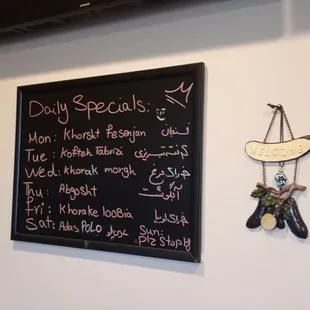 Daily Specials:
Mon: Khorsht Fesenjan فسنجان
Tue: Kofteh Tabrizi کوفته تبریزی
Wed: Khorak morgh خوراک مرغ
Thu: Abgosht آبگوشت
Fri: Khorake looBia خوراک لوبیا
Sat: Adas POLO عدس پلو
Sun:
Plz Stop by
WELCOME